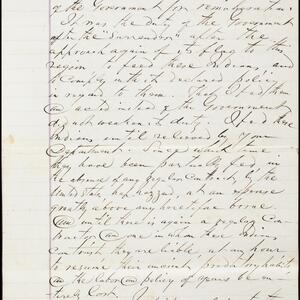 of the Government for remuneration.
It was the duty of the Government
after the "Surrender" after the
approach again of its flag to this
region to feed these Indians, and
to comply with its declared policy
in regard to them. They I fed them
and acted instead of the Government
and its duty. I fed these
Indians until relieved by Your
Department: Since which time
they have been partially fed, in
the absence of any regular contract by the
United States, at an expense
greatly above any heretofore borne
and until there is again a regular con-
tract, and one in whom these Indians
can trust, they are liable at any hour
to resume their ancient predatory habits
and the labor and policy of years be en-
tirely lost.